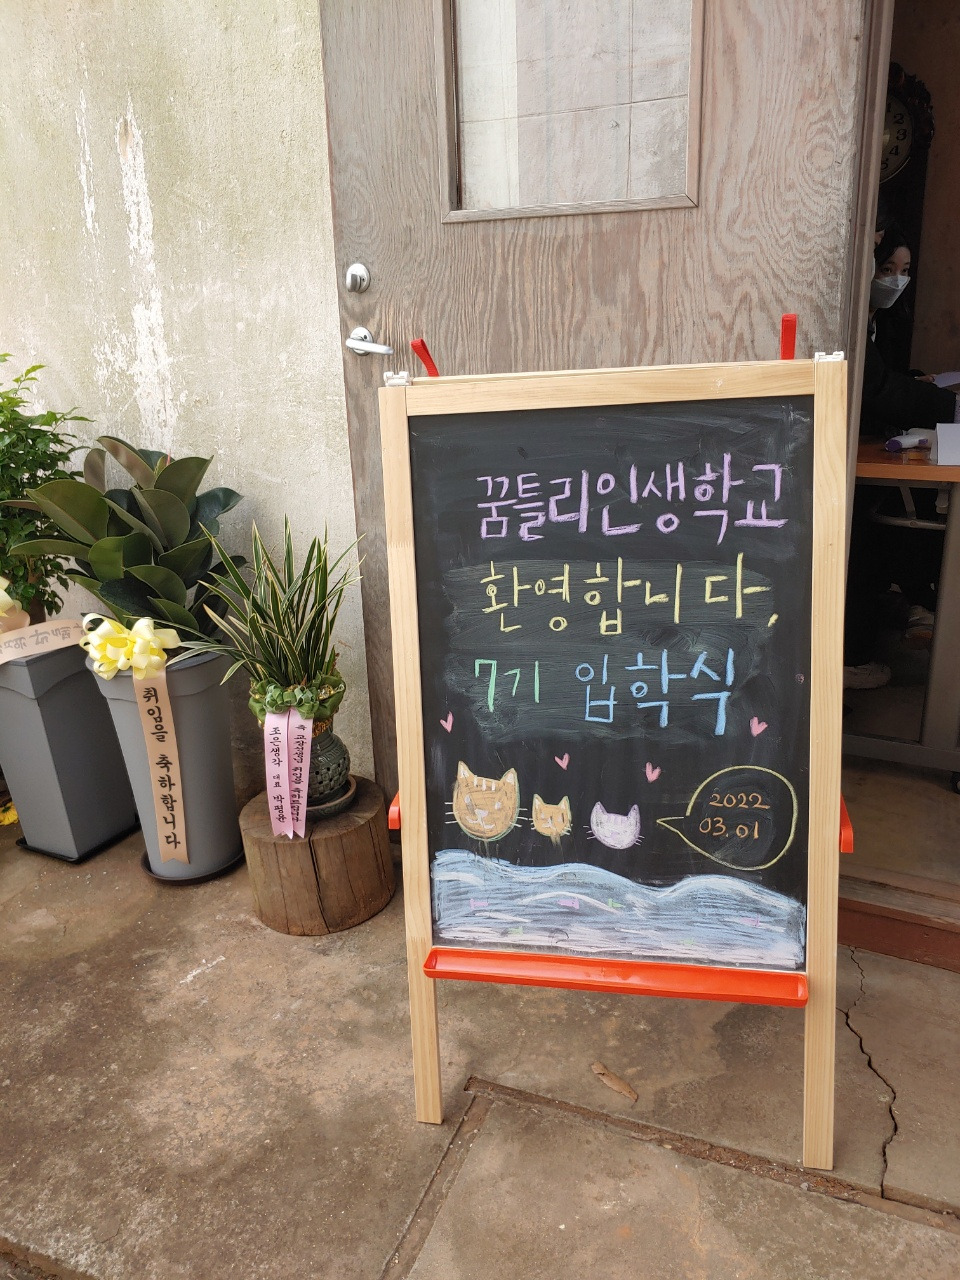 꿈틀리인생학교
환영합니다,
7기 입학식
2022
03.01
취임을 축하합니다
축 교장선생님 취임을 축하드립니다
조은생각 대표 박평윤
2
3
4
5